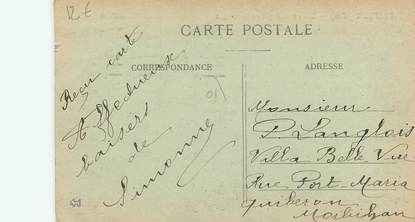 12 €
CARTE POSTALE
CORRESPONDANCE
ADRESSE
Reçu carte
Affectueux
baisers
de
Simonne
Monsieur
P Langlois
Villa Belle Vue
Rue Port-Maria
Quiberon
Morbihan